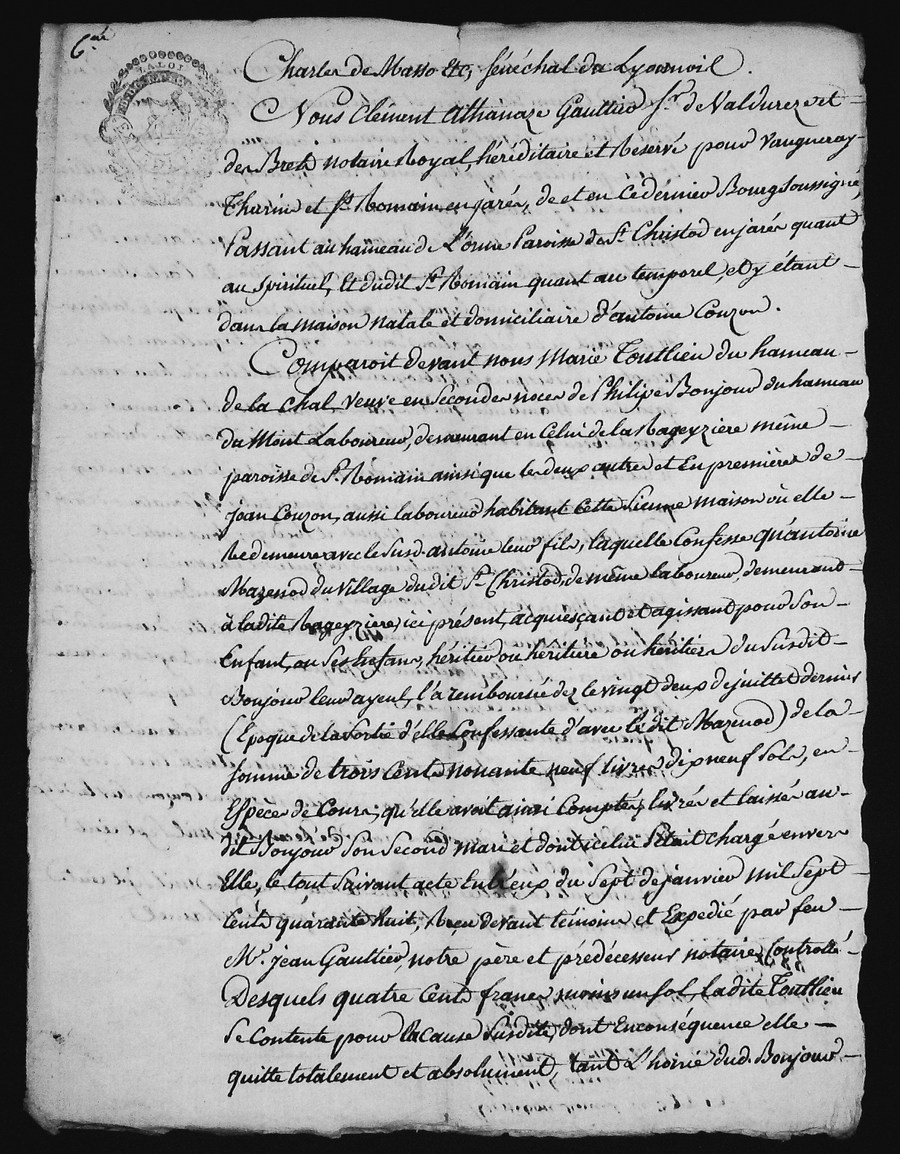 6.me
LA LOI
Charles de Masso etc, sénéchal du Lyonnois.
Nous Clément Athanaze Gaultier Sr. de Valdureze et
des Bretz notaire Royal, héréditaire et Reservé pour Vaugneray
Thurin et St. Romain en jarés, de et en ce dérnier Bourg Soussigné,
Passant au hameau de L'orme Paroisse de St. Christod en jarés quant
au spirituel, Et dudit St. Romain quant au temporel, et y étant
dans la maison natale et domiciliaire d'antoine Couzon.
Comparoit devant nous Marie Touttieu du hameau
de la Chal, veuve en Secondes noces de Philipe Bonjour du hameau
du Mont Laboureur, demeurant en Celui de la Rageyzière même
paroisse de St. Romain ainsi que les deux autres et En premières de
jean Couzon, aussi laboureur habitant Cette Sienne maison où elle
Redemeure avec le Susd. antoine leur fils, laquelle Confesse qu'antoine
Mazenod du village dudit St. Christod, de même laboureur, demeurant
à ladite Rageyziere, ici présent, acquiesçant et agissant pour Son
Enfant, ou Ses Enfans, héritier ou héritière ou héritiers du Susdit
Bonjour leur ayeul, l'a remboursée dez le vingt deux de juillet dérnier
(Epoque de la Sortie d'elle Confessante d'avec le dit Mazenod) de la
somme de trois Cents nonante neuf livres dix neuf Sols, en
Espèces de Cours, qu'elle avoit ainsi Comptés, livrés et laissés au
dit Bonjour Son Second mari et dont icelui S'étoit chargé envers
Elle, le tout Suivant acte Entr'eux du Sept de janvier mil Sept
Cent quarante huit, Reçu devant témoins et Expedié par feu
Mr. jean Gaultier, notre père et prédécesseur notaire, Controllé.
Desquels quatre Cents francs moins un Sol, ladite Touttieu
Se Contente pour la Cause Susdite, dont En conséquence elle
quitte totalement et absolument, tant L'hoirié dud. Bonjour